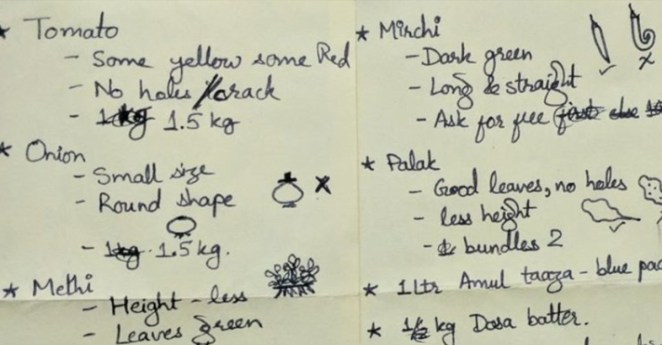 * Tomato
- Some yellow some Red
- No holes / crack
- 1.5 kg
* Onion
- Small size
- Round shape
- 1.5 kg.
* Methi
- Height - less
- Leaves green
* Mirchi
- Dark green
- Long & straight
- Ask for free
* Palak
- Good leaves, no holes
- less height
- bundles 2
* 1 Ltr Amul taaza - blue
* 1/2 kg Dosa batter.